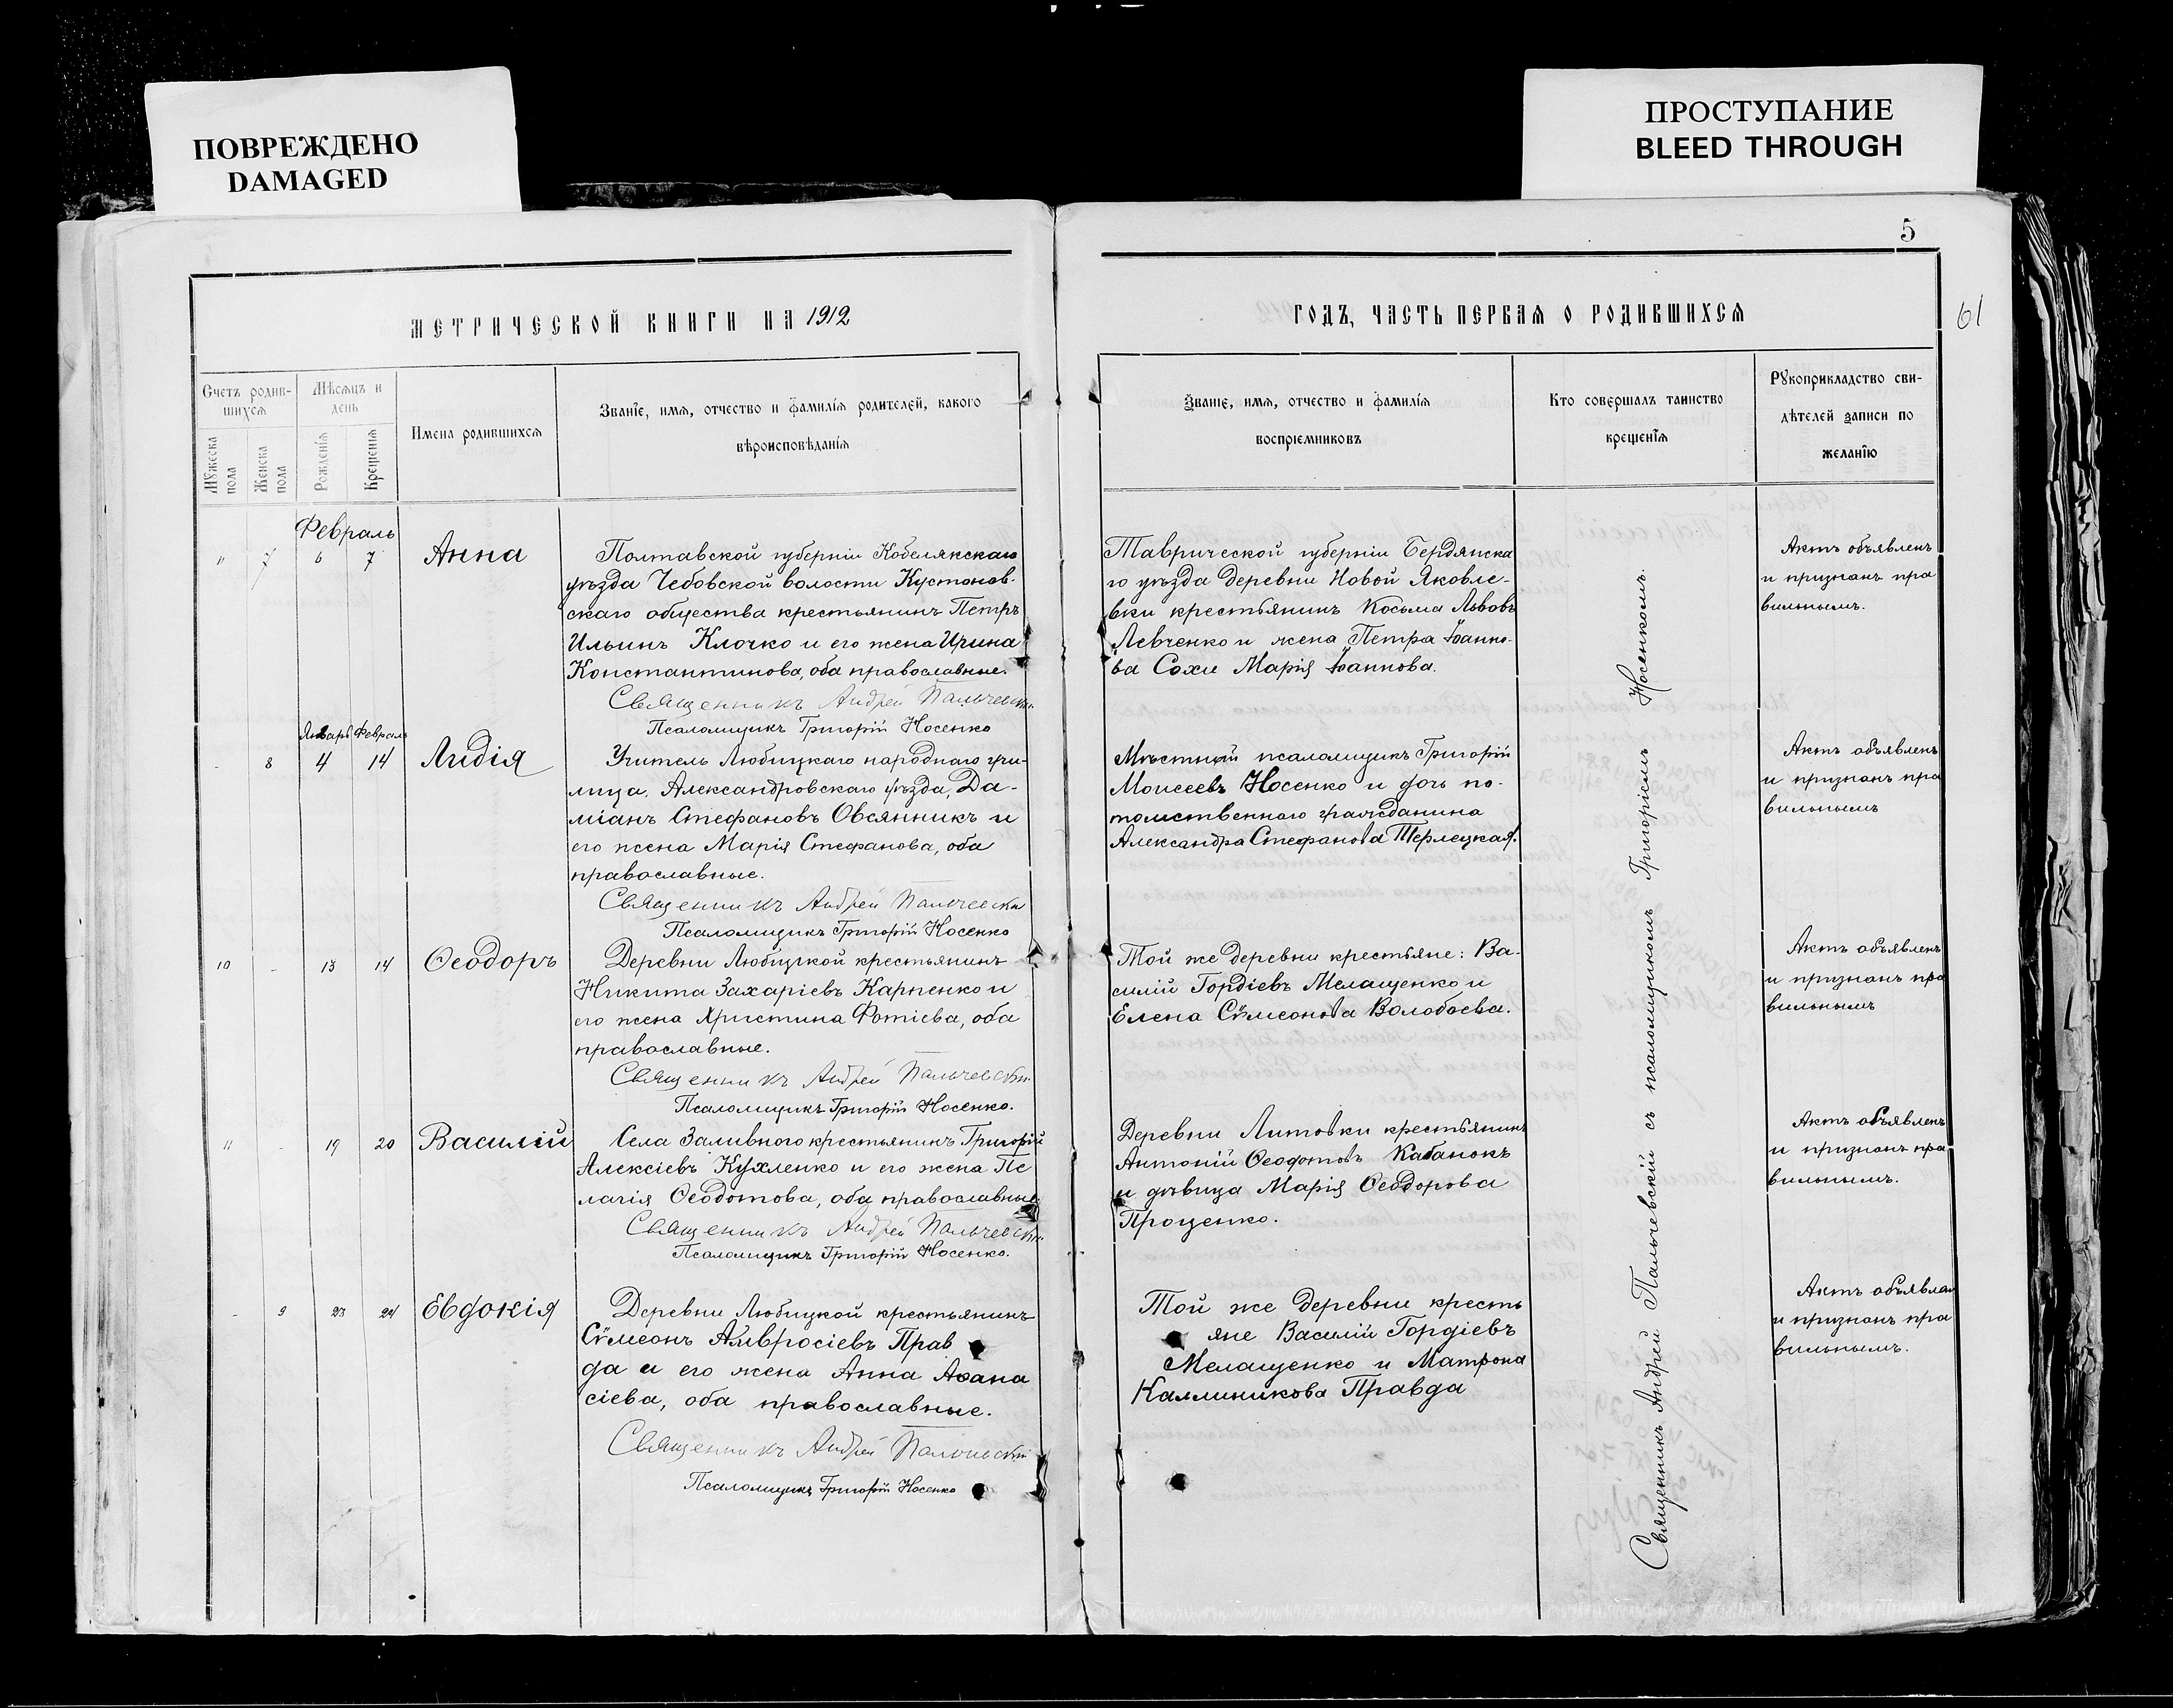 ПОВРЕЖДЕНО
DAMAGED
ПРОСТУПАНИЕ
BLEED THROUGH
5
61
МЕТРИЧЕСКОЙ КНИГИ НА 1912
ГОДЪ, ЧАСТЬ ПЕРВАЯ О РОДИВШИХСЯ
Счетъ родив-
шихся
Мужеска пола
Женска пола
Мѣсяцъ и
день
Рожденія
Крещенія
Имена родившихся
Званіе, имя, отчество и фамилія родителей, какого
вѣроисповѣданія
Званіе, имя, отчество и фамилія
воспріемниковъ
Кто совершалъ таинство
крещенія
Рукоприкладство сви-
дѣтелей записи по
желанію
Февраль
" 7 6 7 Анна
Полтавской губерніи Кобелякскаго
уѣзда Чебовской волости Кустолов-
скаго общества крестьянинъ Петръ
Ильинъ Клочко и его жена Ирина
Константинова, оба православные.
Священникъ Андрей Пальчевскій
Псаломщикъ Григорій Носенко
Таврической губерніи Бердянска
го уѣзда деревни Новой Яковле-
вки крестьянинъ Косьма Львовъ
Левченко и жена Петра Іоанно-
ва Сохи Марія Іоаннова.
Актъ объявленъ
и признанъ пра
вильнымъ.
Январь Февраль
- 8 4 14 Лидія
Учитель Любицкаго народнаго учи-
лища, Александровскаго уѣзда, Да-
міанъ Стефановъ Овсянникъ и
его жена Марія Стефанова, оба
православные.
Священникъ Андрей Пальчевскій
Псаломщикъ Григорій Носенко
Мѣстный псаломщикъ Григорій
Моисеевъ Носенко и дочь по-
томственнаго гражданина
Александра Стефанова Терлецкая.
Актъ объявленъ
и признанъ пра
вильнымъ
10 - 13 14 Ѳеодоръ
Деревни Любицкой крестьянинъ
Никита Захаріевъ Карпенко и
его жена Христина Фотіева, оба
православные.
Священникъ Андрей Пальчевскій
Псаломщикъ Григорій Носенко.
Той же деревни крестьяне: Ва-
силій Гордіевъ Мелащенко и
Елена Сѵмеонова Волобоева.
Актъ объявленъ
и признанъ пра
вильнымъ
11 - 19 20 Василій
Села Заливного крестьянинъ Григорій
Алексіевъ Кухленко и его жена Пе
лагія Ѳеодотова, оба православные
Священникъ Андрей Пальчевскій
Псаломщикъ Григорій Носенко.
Деревни Литовки крестьянинъ
Антоній Ѳеодотовъ Кабанокъ
и дѣвица Марія Ѳеодорова
Проценко.
Актъ объявленъ
и признанъ пра
вильнымъ.
- 9 23 24 Евдокія
Деревни Любицкой крестьянинъ
Сѵмеонъ Амвросіевъ Прав
да и его жена Анна Аѳана
сіева, оба православные.
Священникъ Андрей Пальчевскій
Псаломщикъ Григорій Носенко
Той же деревни кресть
яне Василій Гордіевъ
Мелащенко и Матрона
Каллиникова Правда
Актъ объявлен
и признанъ пра
вильнымъ.
Священникъ Андрей Пальчевскій съ псаломщикомъ Григоріемъ Носенкомъ.